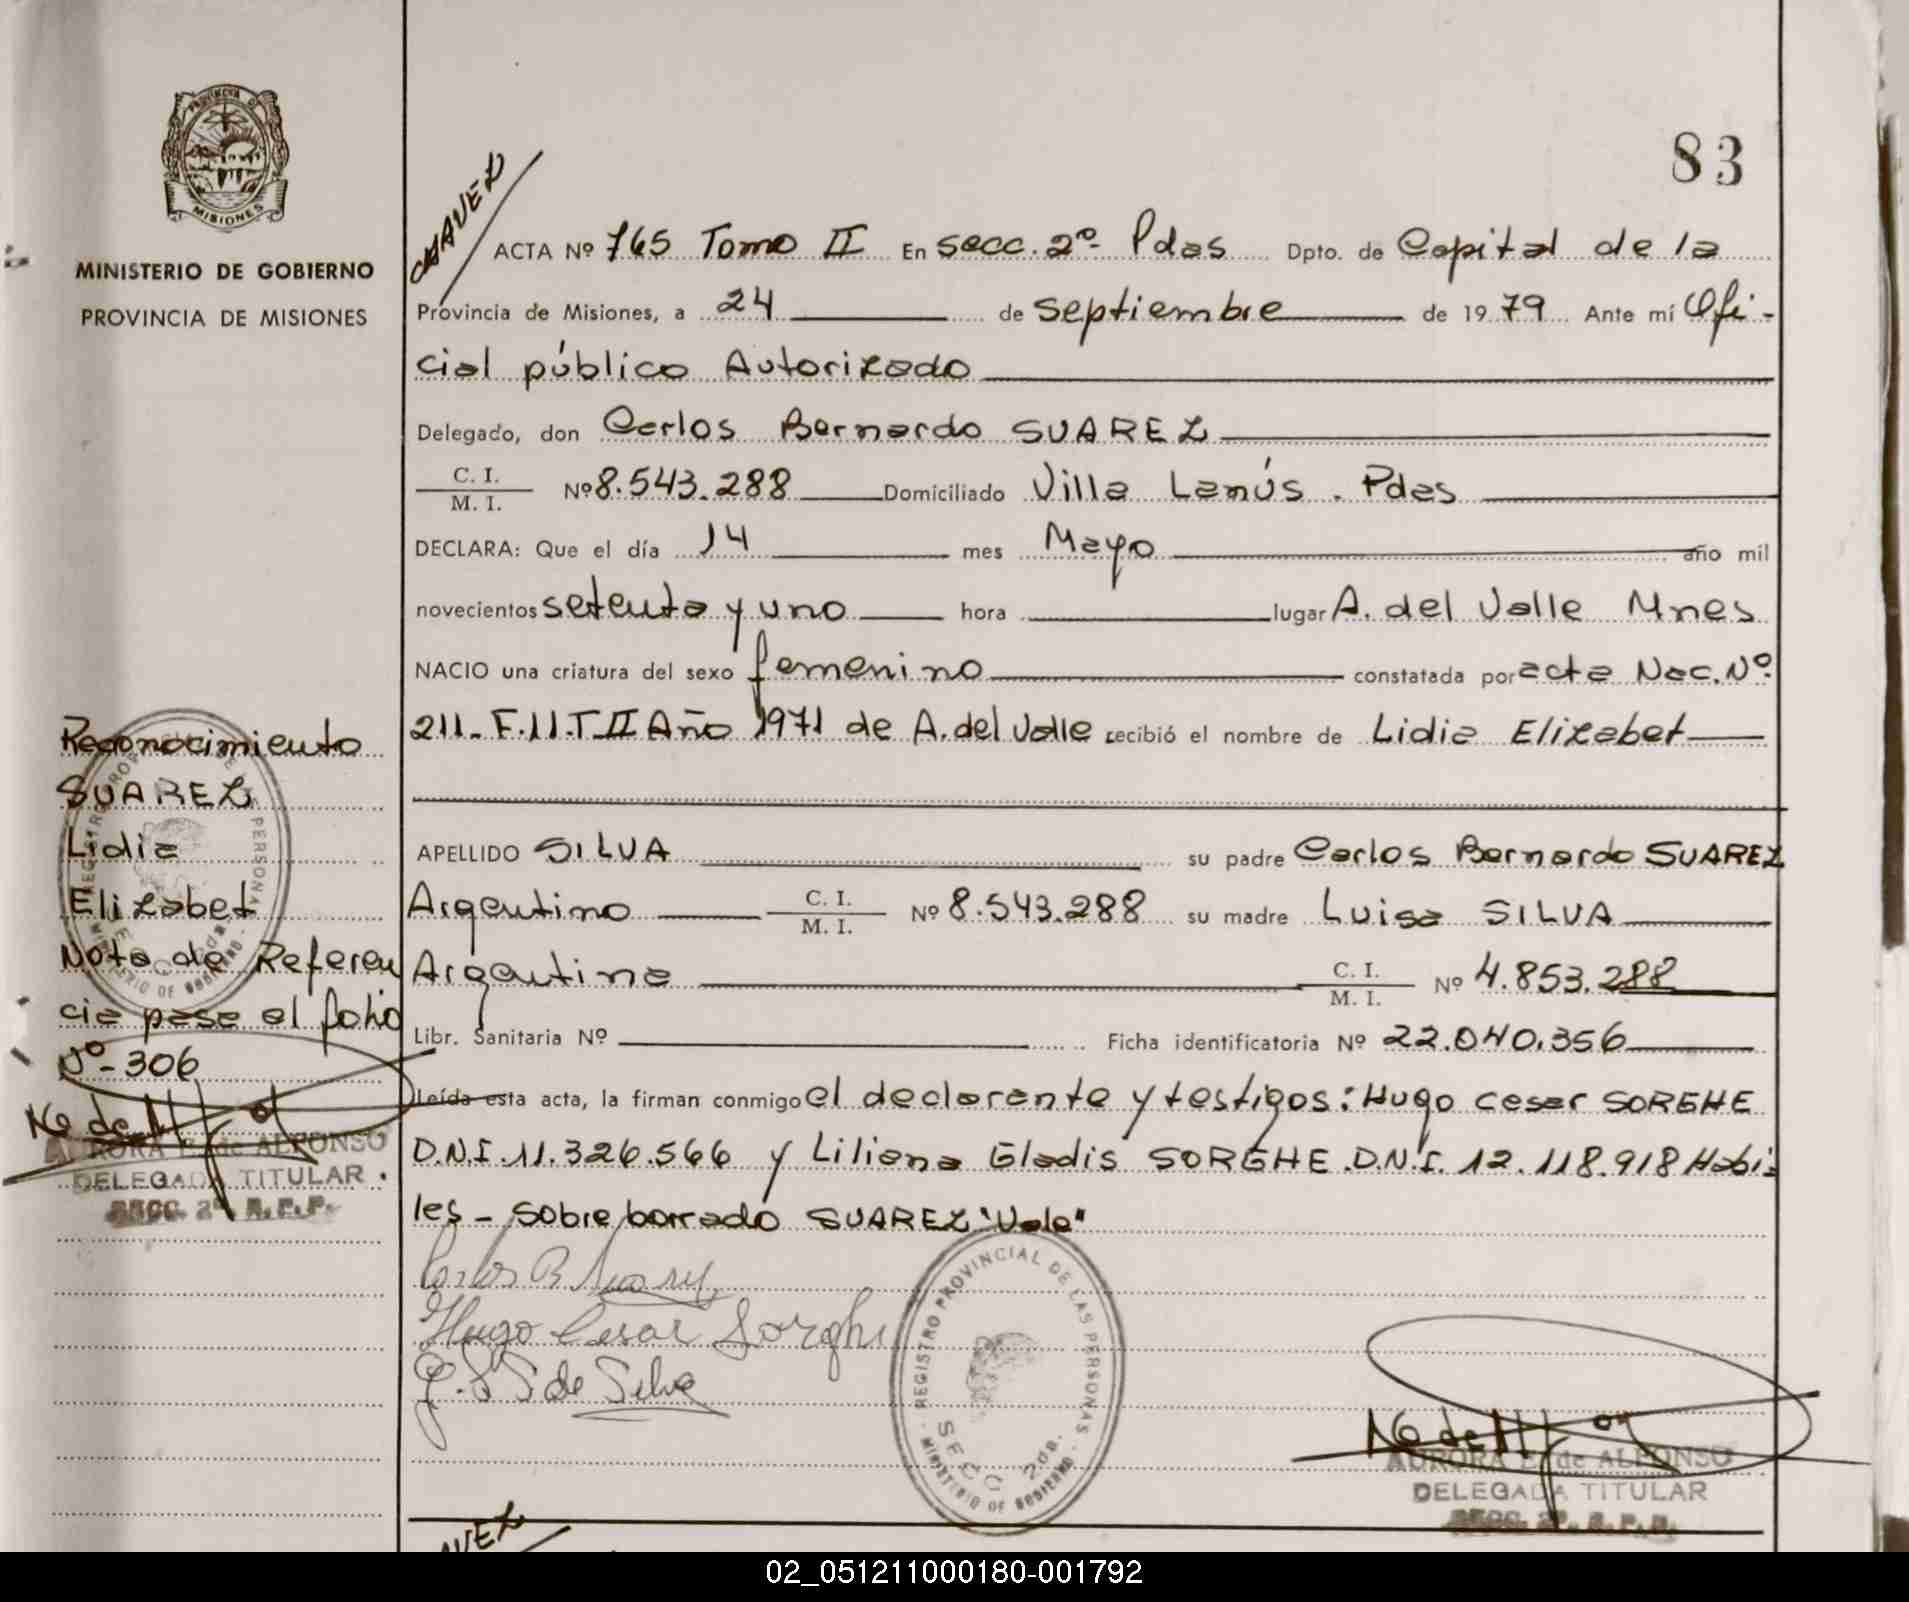 83
PROVINCIA DE
MISIONES
MINISTERIO DE GOBIERNO
PROVINCIA DE MISIONES
CHAVEZ
ACTA Nº 765 Tomo II En secc. 2º- Pdas Dpto. de Capital de la
Provincia de Misiones, a 24 de septiembre de 1979 Ante mí Ofi-
cial público Autorizado
Delegado, don Carlos Bernardo SUAREZ
C. I.
M. I. Nº 8.543.288 Domiciliado Villa Lanús . Pdas
DECLARA: Que el día 14 mes Mayo año mil
novecientos setenta y uno hora lugar A. del Valle Mnes
NACIO una criatura del sexo femenino constatada por acta Nac. Nº
211. F.11.T II Año 1971 de A. del Valle recibió el nombre de Lidia Elizabet
APELLIDO SILVA su padre Carlos Bernardo SUAREZ
Argentino C. I. M. I. Nº 8.543.288 su madre Luisa SILVA
Argentina C. I. M. I. Nº 4.853.288
Libr. Sanitaria Nº Ficha identificatoria Nº 22.040.356
Leída esta acta, la firman conmigo el declarante y testigos: Hugo Cesar SORGHE
D.N.I. 11.326.566 y Liliana Gladis SORGHE. D.N.I. 12.118.918 Habi
les - Sobre borrado SUAREZ "Vale"
Carlos B Suarez
Hugo Cesar Sorghe
de Silva
REGISTRO PROVINCIAL DE LAS PERSONAS
SECC 2da.
MINISTERIO DE GOBIERNO
AURORA E. de ALFONSO
DELEGADA TITULAR
SECC. 2ª. R. P. P.
Reconocimiento
SUAREZ
Lidia
Elizabet
Nota de Referen
cia pase al folio
Nº- 306
AURORA E. de ALFONSO
DELEGADA TITULAR
SECC. 2ª R. P. P.
02_051211000180-001792